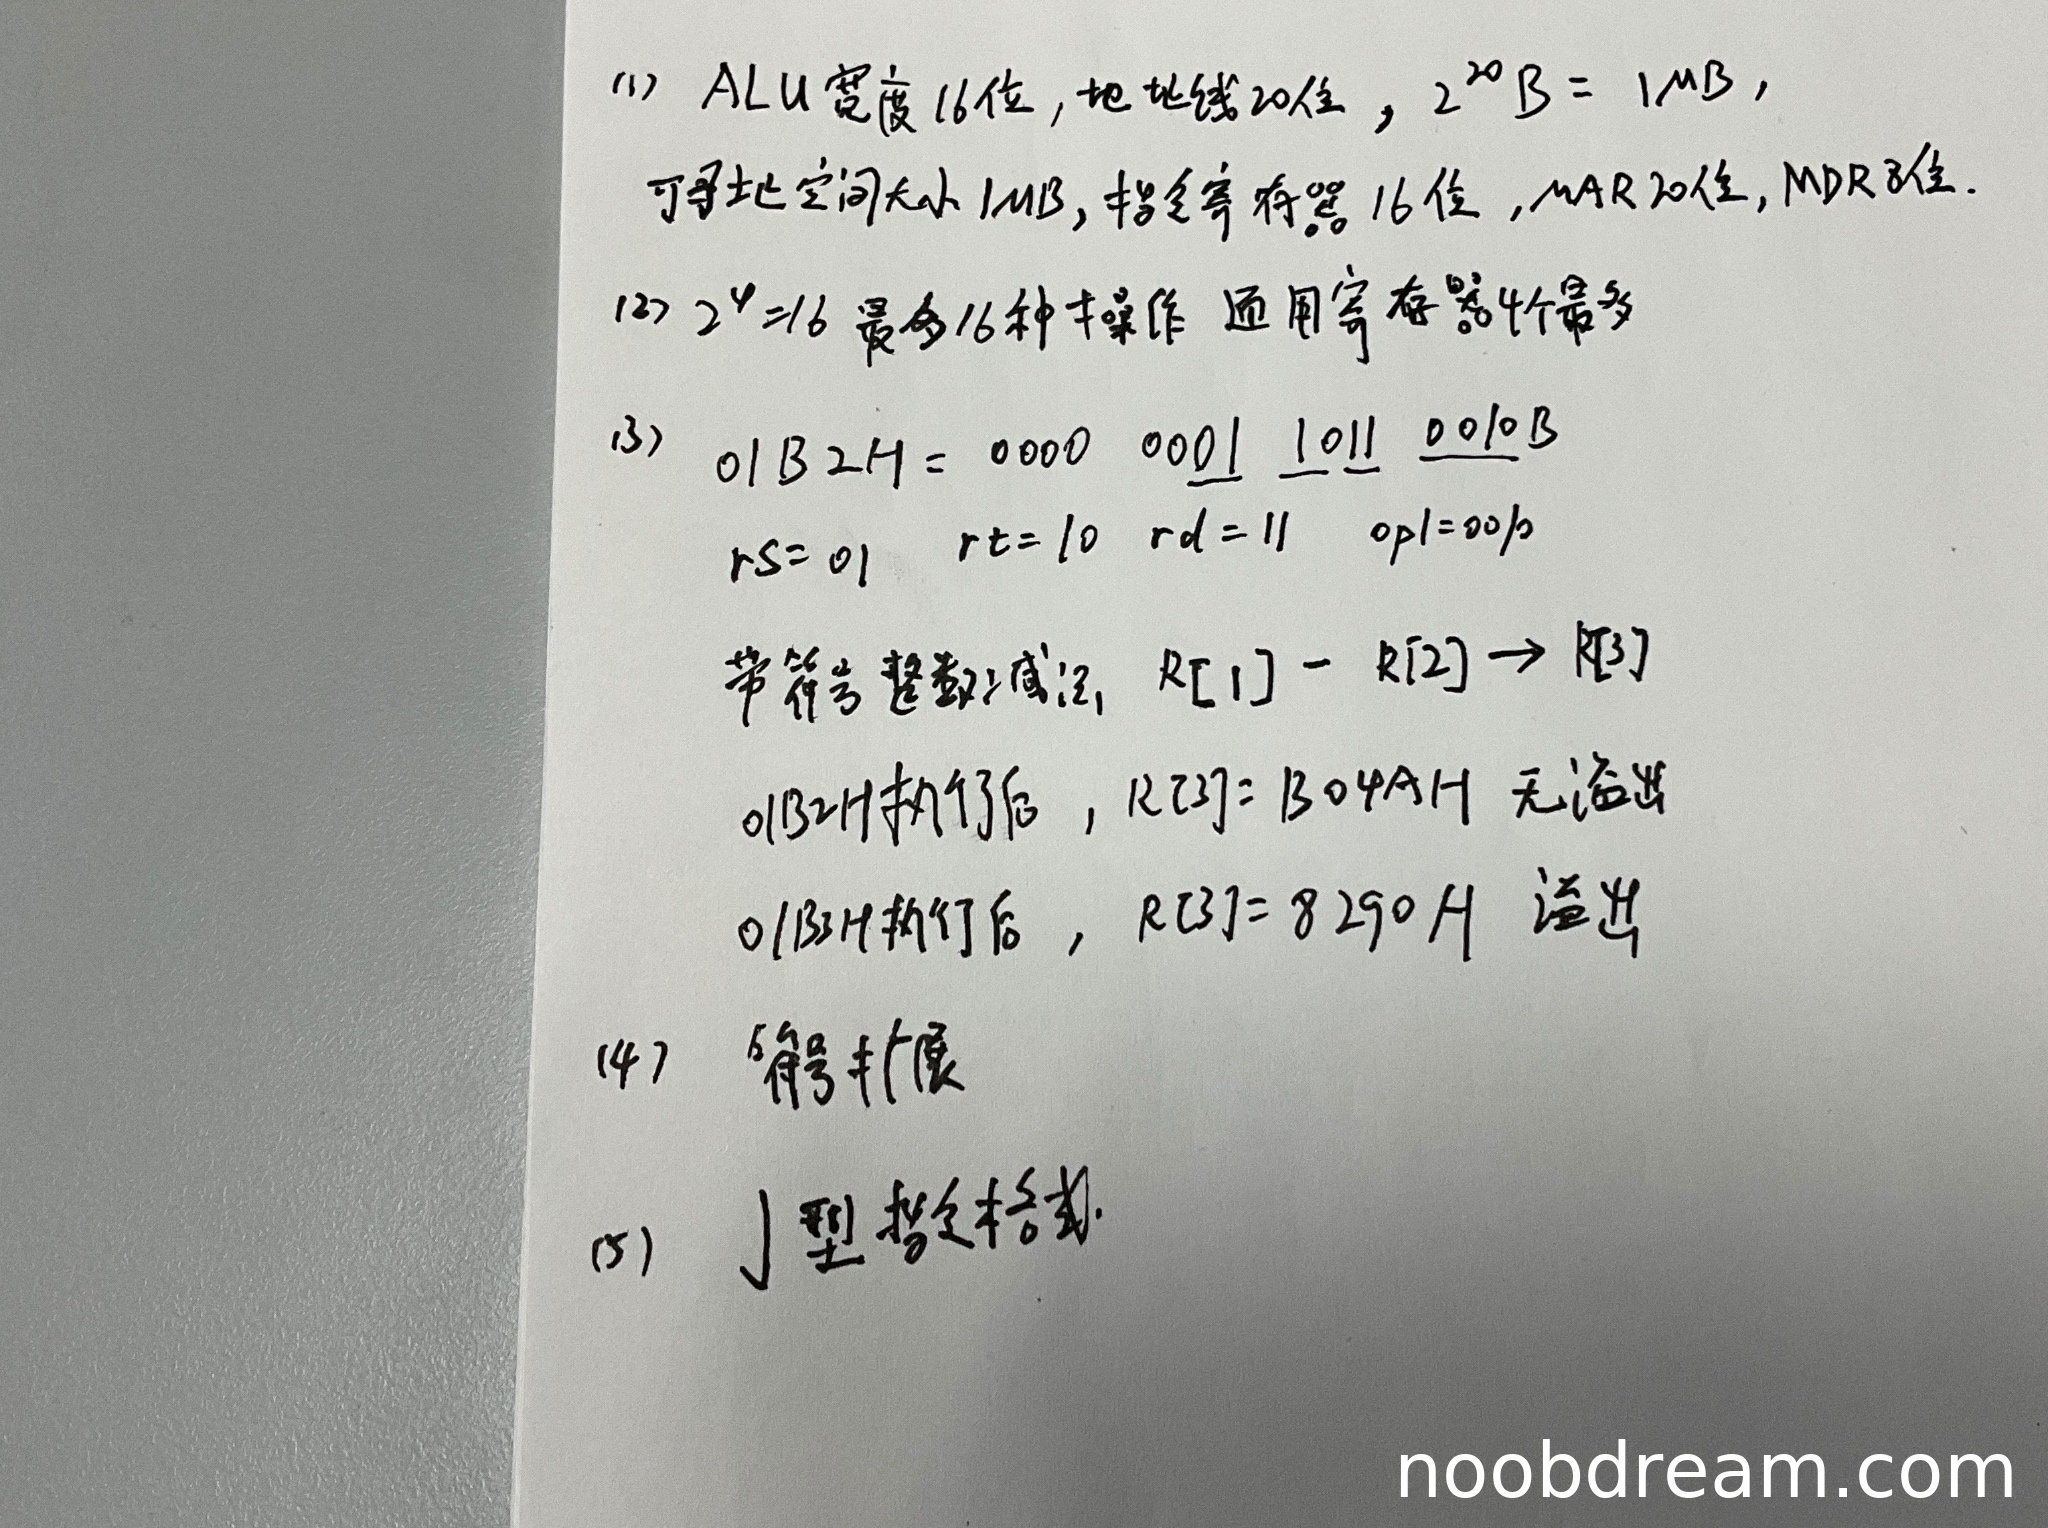 (1) ALU宽度16位,地址线20位,2²⁰B=1MB,
可寻址空间大小1MB,指令寄存器16位,MAR20位,MDR8位.
(2) 2⁴=16 最多16种操作 通用寄存器4个最多
(3) 01B2H= 0000 0001 1011 0010B
rs=01 rt=10 rd=11 op1=0010
带符号整数减法, R[1] - R[2] → R[3]
01B2H执行后, R[3]=B04AH 无溢出
01B3H执行后, R[3]=8290H 溢出
(4) 符号扩展
(5) J型指令格式.
noobdream.com